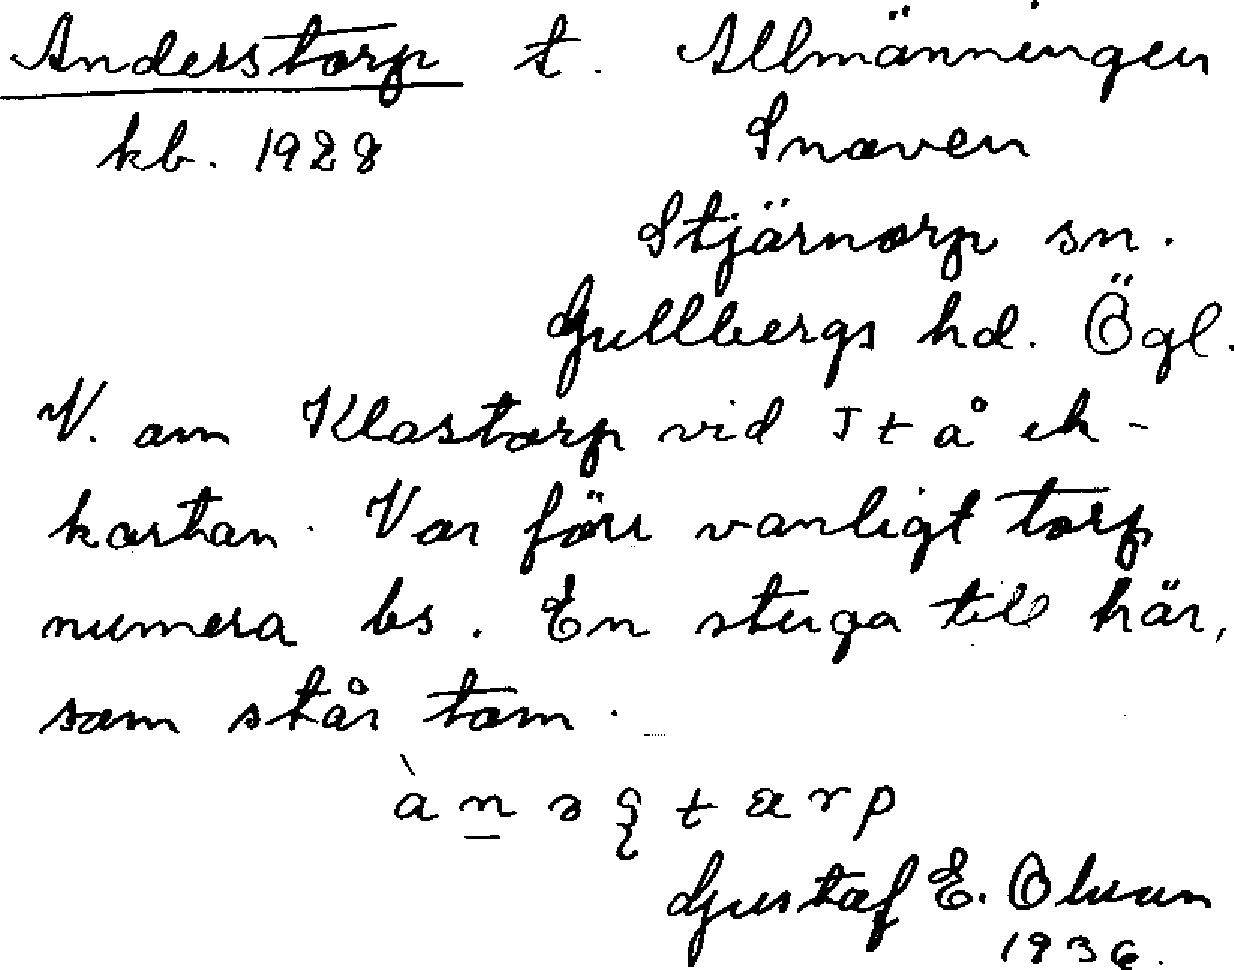 Anderstorp t. Allmänningen
kb. 1928 Snaven
Stjärnorp sn.
Gullbergs hd. Ögl.
V. om Klostorp vid Stå ek-
kartan. Var förr vanligt torp
numera bs. En stuga till här,
som står tom.
Gustaf E. Olsson
1936.